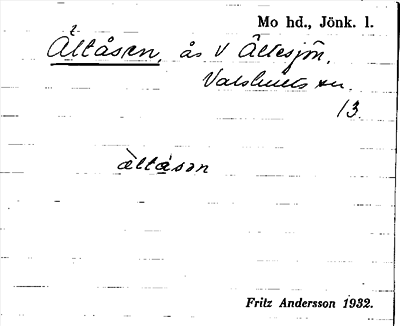 Mo hd., Jönk. l.
Ältåsen, ås V Ältesjön.
Valshults
13.
àltåsən
Fritz Andersson 1932.